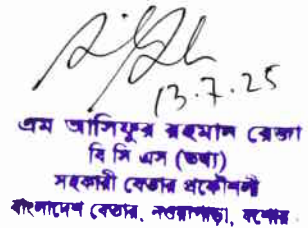 13.7.25
এম আনিছুর রহমান রেজা
বি সি এস (তথ্য)
সহকারী বেতার প্রকৌশলী
বাংলাদেশ বেতার, নওয়াপাড়া, যশোর.